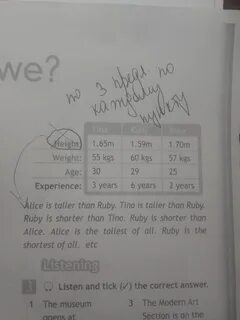 we?
по 3 предл. по
каждому
пункту
Tina Ruby Alice
Height: 1.65m 1.59m 1.70m
Weight: 55 kgs 60 kgs 57 kgs
Age: 30 29 25
Experience: 3 years 6 years 2 years
Alice is taller than Ruby. Tina is taller than Ruby.
Ruby is shorter than Tina. Ruby is shorter than
Alice. Alice is the tallest of all. Ruby is the
shortest of all. etc
Listening
3 Listen and tick (✓) the correct answer.
1 The museum 3 The Modern Art
opens at Section is on the